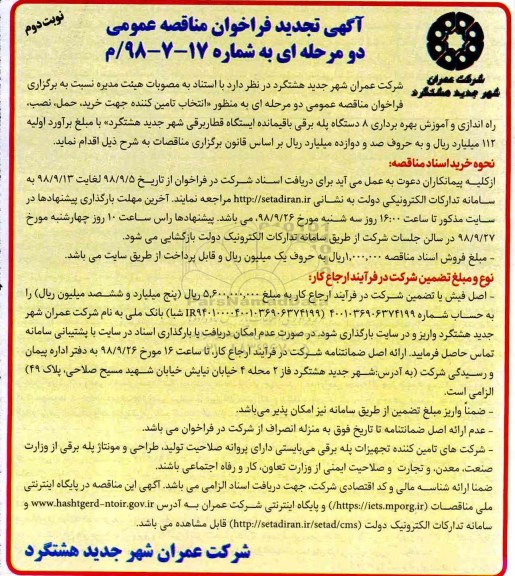 نوبت دوم
آگهی تجدید فراخوان مناقصه عمومی
دو مرحله ای به شماره ۱۷-۷-۹۸/م
شرکت عمران
شهر جدید هشتگرد
شرکت عمران شهر جدید هشتگرد در نظر دارد با استناد به مصوبات هیئت مدیره نسبت به برگزاری
فراخوان مناقصه عمومی دو مرحله ای به منظور «انتخاب تامین کننده جهت خرید، حمل، نصب،
راه اندازی و آموزش بهره برداری ۸ دستگاه پله برقی باقیمانده ایستگاه قطاربرقی شهر جدید هشتگرد» با مبلغ برآورد اولیه
۱۱۲ میلیارد ریال و به حروف صد و دوازده میلیارد ریال بر اساس قانون برگزاری مناقصات به شرح ذیل اقدام نماید.
نحوه خرید اسناد مناقصه:
ازکلیه پیمانکاران دعوت به عمل می آید برای دریافت اسناد شرکت در فراخوان از تاریخ ۹۸/۹/۵ لغایت ۹۸/۹/۱۳ به
سامانه تدارکات الکترونیکی دولت به نشانی http://setadiran.ir مراجعه نمایند. آخرین مهلت بارگذاری پیشنهادها در
سایت مذکور تا ساعت ۱۶:۰۰ روز سه شنبه مورخ ۹۸/۹/۲۶، می باشد. پیشنهادها راس ساعت ۱۰ روز چهارشنبه مورخ
۹۸/۹/۲۷ در سالن جلسات شرکت از طریق سامانه تدارکات الکترونیک دولت بازگشایی می شود.
- مبلغ فروش اسناد مناقصه ۱,۰۰۰,۰۰۰ریال به حروف یک میلیون ریال و قابل پرداخت از طریق سایت می باشد.
نوع و مبلغ تضمین شرکت در فرآیند ارجاع کار:
- اصل فیش یا تضمین شرکت در فرآیند ارجاع کار به مبلغ ۵,۶۰۰,۰۰۰,۰۰۰ ریال (پنج میلیارد و ششصد میلیون ریال) را
به حساب شماره ۴۰۰۱۰۳۶۹۰۶۳۷۴۱۹۹ شبا) بانک ملی به نام شرکت عمران شهر
جدید هشتگرد واریز و در سایت بارگذاری شود. در صورت عدم امکان دریافت یا بارگذاری اسناد در سایت با پشتیبانی سامانه
تماس حاصل فرمایید. ارائه اصل ضمانتنامه شرکت در فرآیند ارجاع کار، تا ساعت ۱۶ مورخ ۹۸/۹/۲۶ به دفتر اداره پیمان
و رسیدگی شرکت (به آدرس:شهر جدید هشتگرد فاز ۲ محله ۴ خیابان نیایش خیابان شهید مسیح صلاحی، پلاک ۴۹)
الزامی است.
- ضمناً واریز مبلغ تضمین از طریق سامانه نیز امکان پذیر می‌باشد.
- عدم ارائه اصل ضمانتنامه تا تاریخ فوق به منزله انصراف از شرکت در فراخوان می باشد.
- شرکت های تامین کننده تجهیزات پله برقی می‌بایستی دارای پروانه صلاحیت تولید، طراحی و مونتاژ پله برقی از وزارت
صنعت، معدن، و تجارت و صلاحیت ایمنی از وزارت تعاون، کار و رفاه اجتماعی باشند.
ضمنا ارائه شناسه مالی و کد اقتصادی شرکت، جهت دریافت اسناد الزامی می باشد. آگهی این مناقصه در پایگاه اینترنتی
ملی مناقصات (https://iets.mporg.ir) و پایگاه اینترنتی شرکت عمران به آدرس www.hashtgerd-ntoir.gov.ir و
سامانه تدارکات الکترونیک دولت (http://setadiran.ir/setad/cms) قابل مشاهده می باشد.
شرکت عمران شهر جدید هشتگرد